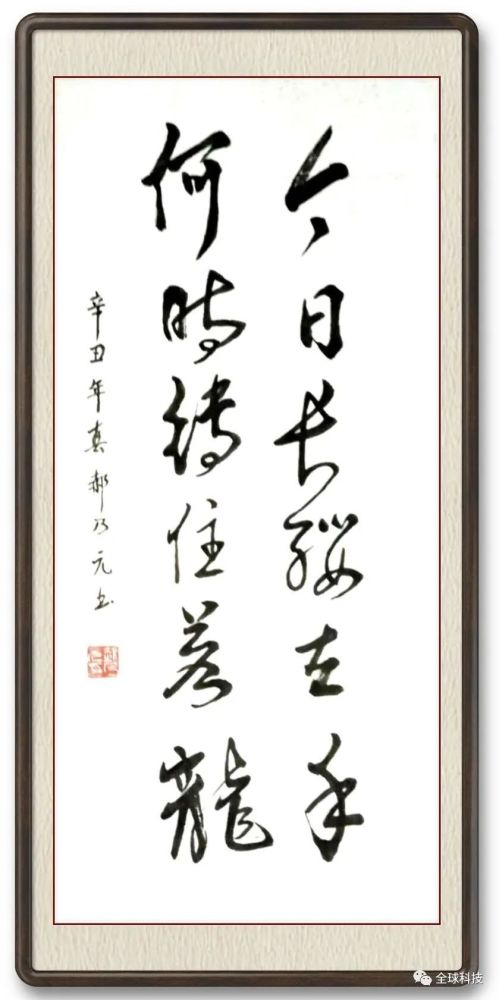 今日长缨在手
何時縛住苍龍
辛丑年 郝乃元书
全球科技